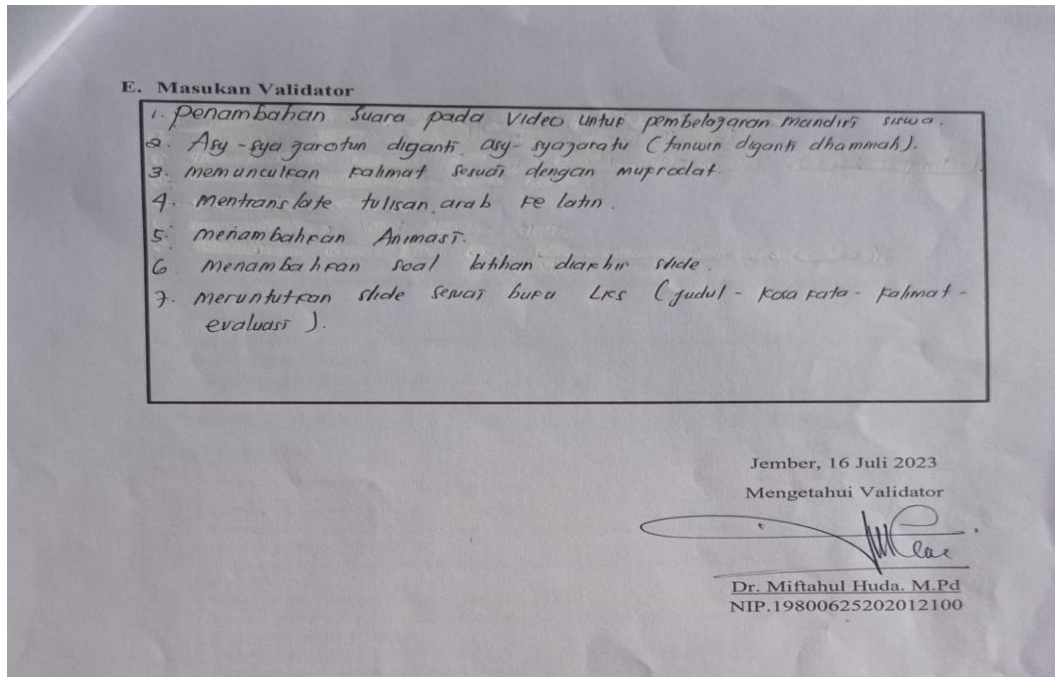 E. Masukan Validator
1. Penambahan suara pada video untuk pembelajaran mandiri siswa.
2. Asy-syajarotun diganti asy-syajaratu (tanwin diganti dhammah).
3. memunculkan kalimat sesuai dengan muprodat.
4. Mentranslate tulisan arab ke latin.
5. menambahkan Animasi.
6. Menambahkan soal latihan diakhir slide.
7. meruntutkan slide sesuai buku LKS (judul - kosa kata - kalimat -
evaluasi).
Jember, 16 Juli 2023
Mengetahui Validator
Dr. Miftahul Huda. M.Pd
NIP.19800625202012100